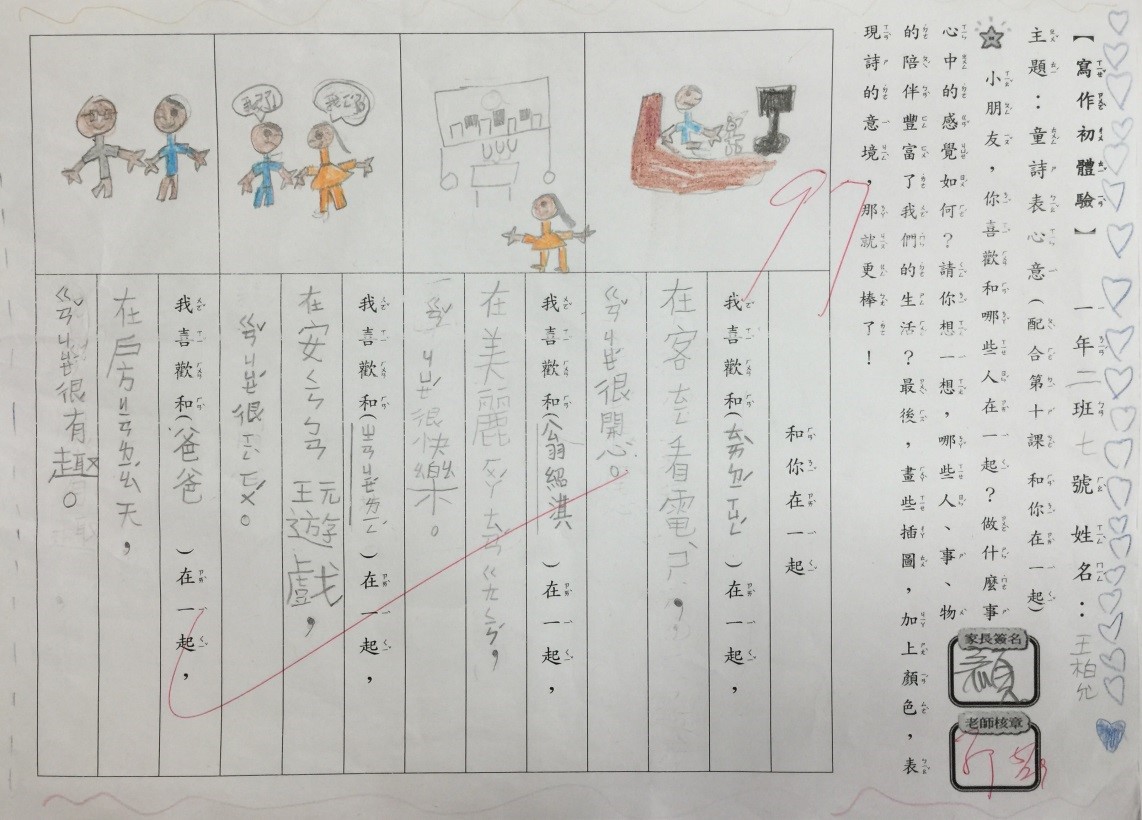 【寫作初體驗】 一年二班七號姓名：王柏允
主題：童詩表心意（配合第十課 和你在一起）
小朋友，你喜歡和哪些人在一起？做什麼事
心中的感覺如何？請你想一想，哪些人、事、物
的陪伴豐富了我們的生活？最後，畫些插圖，加上顏色，表
現詩的意境，那就更棒了！
家長簽名
顏
老師核章
97
和你在一起
我喜歡和（）在一起，
在客ㄊㄧㄥ看電ㄕˋ，
ㄍㄢˇㄐㄩㄝˊ很開心。
我喜歡和（翁紹淇）在一起，
在美麗
ㄍㄢˇㄐㄩㄝˊ很快樂。
我喜歡和（）在一起，
在安ㄑㄧㄣ ㄅㄢ玩遊戲，
ㄍㄢˇㄐㄩㄝˊ很
我喜歡和（爸爸）在一起，
在房ㄐㄧㄢ ㄌㄧㄠˊ天，
ㄍㄢˇㄐㄩㄝˊ很有趣。